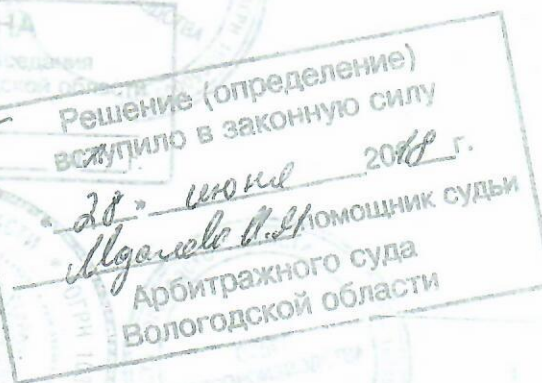 Решение (определение)
вступило в законную силу
"28" июня 2018 г.
помощник судьи
Арбитражного суда
Вологодской области